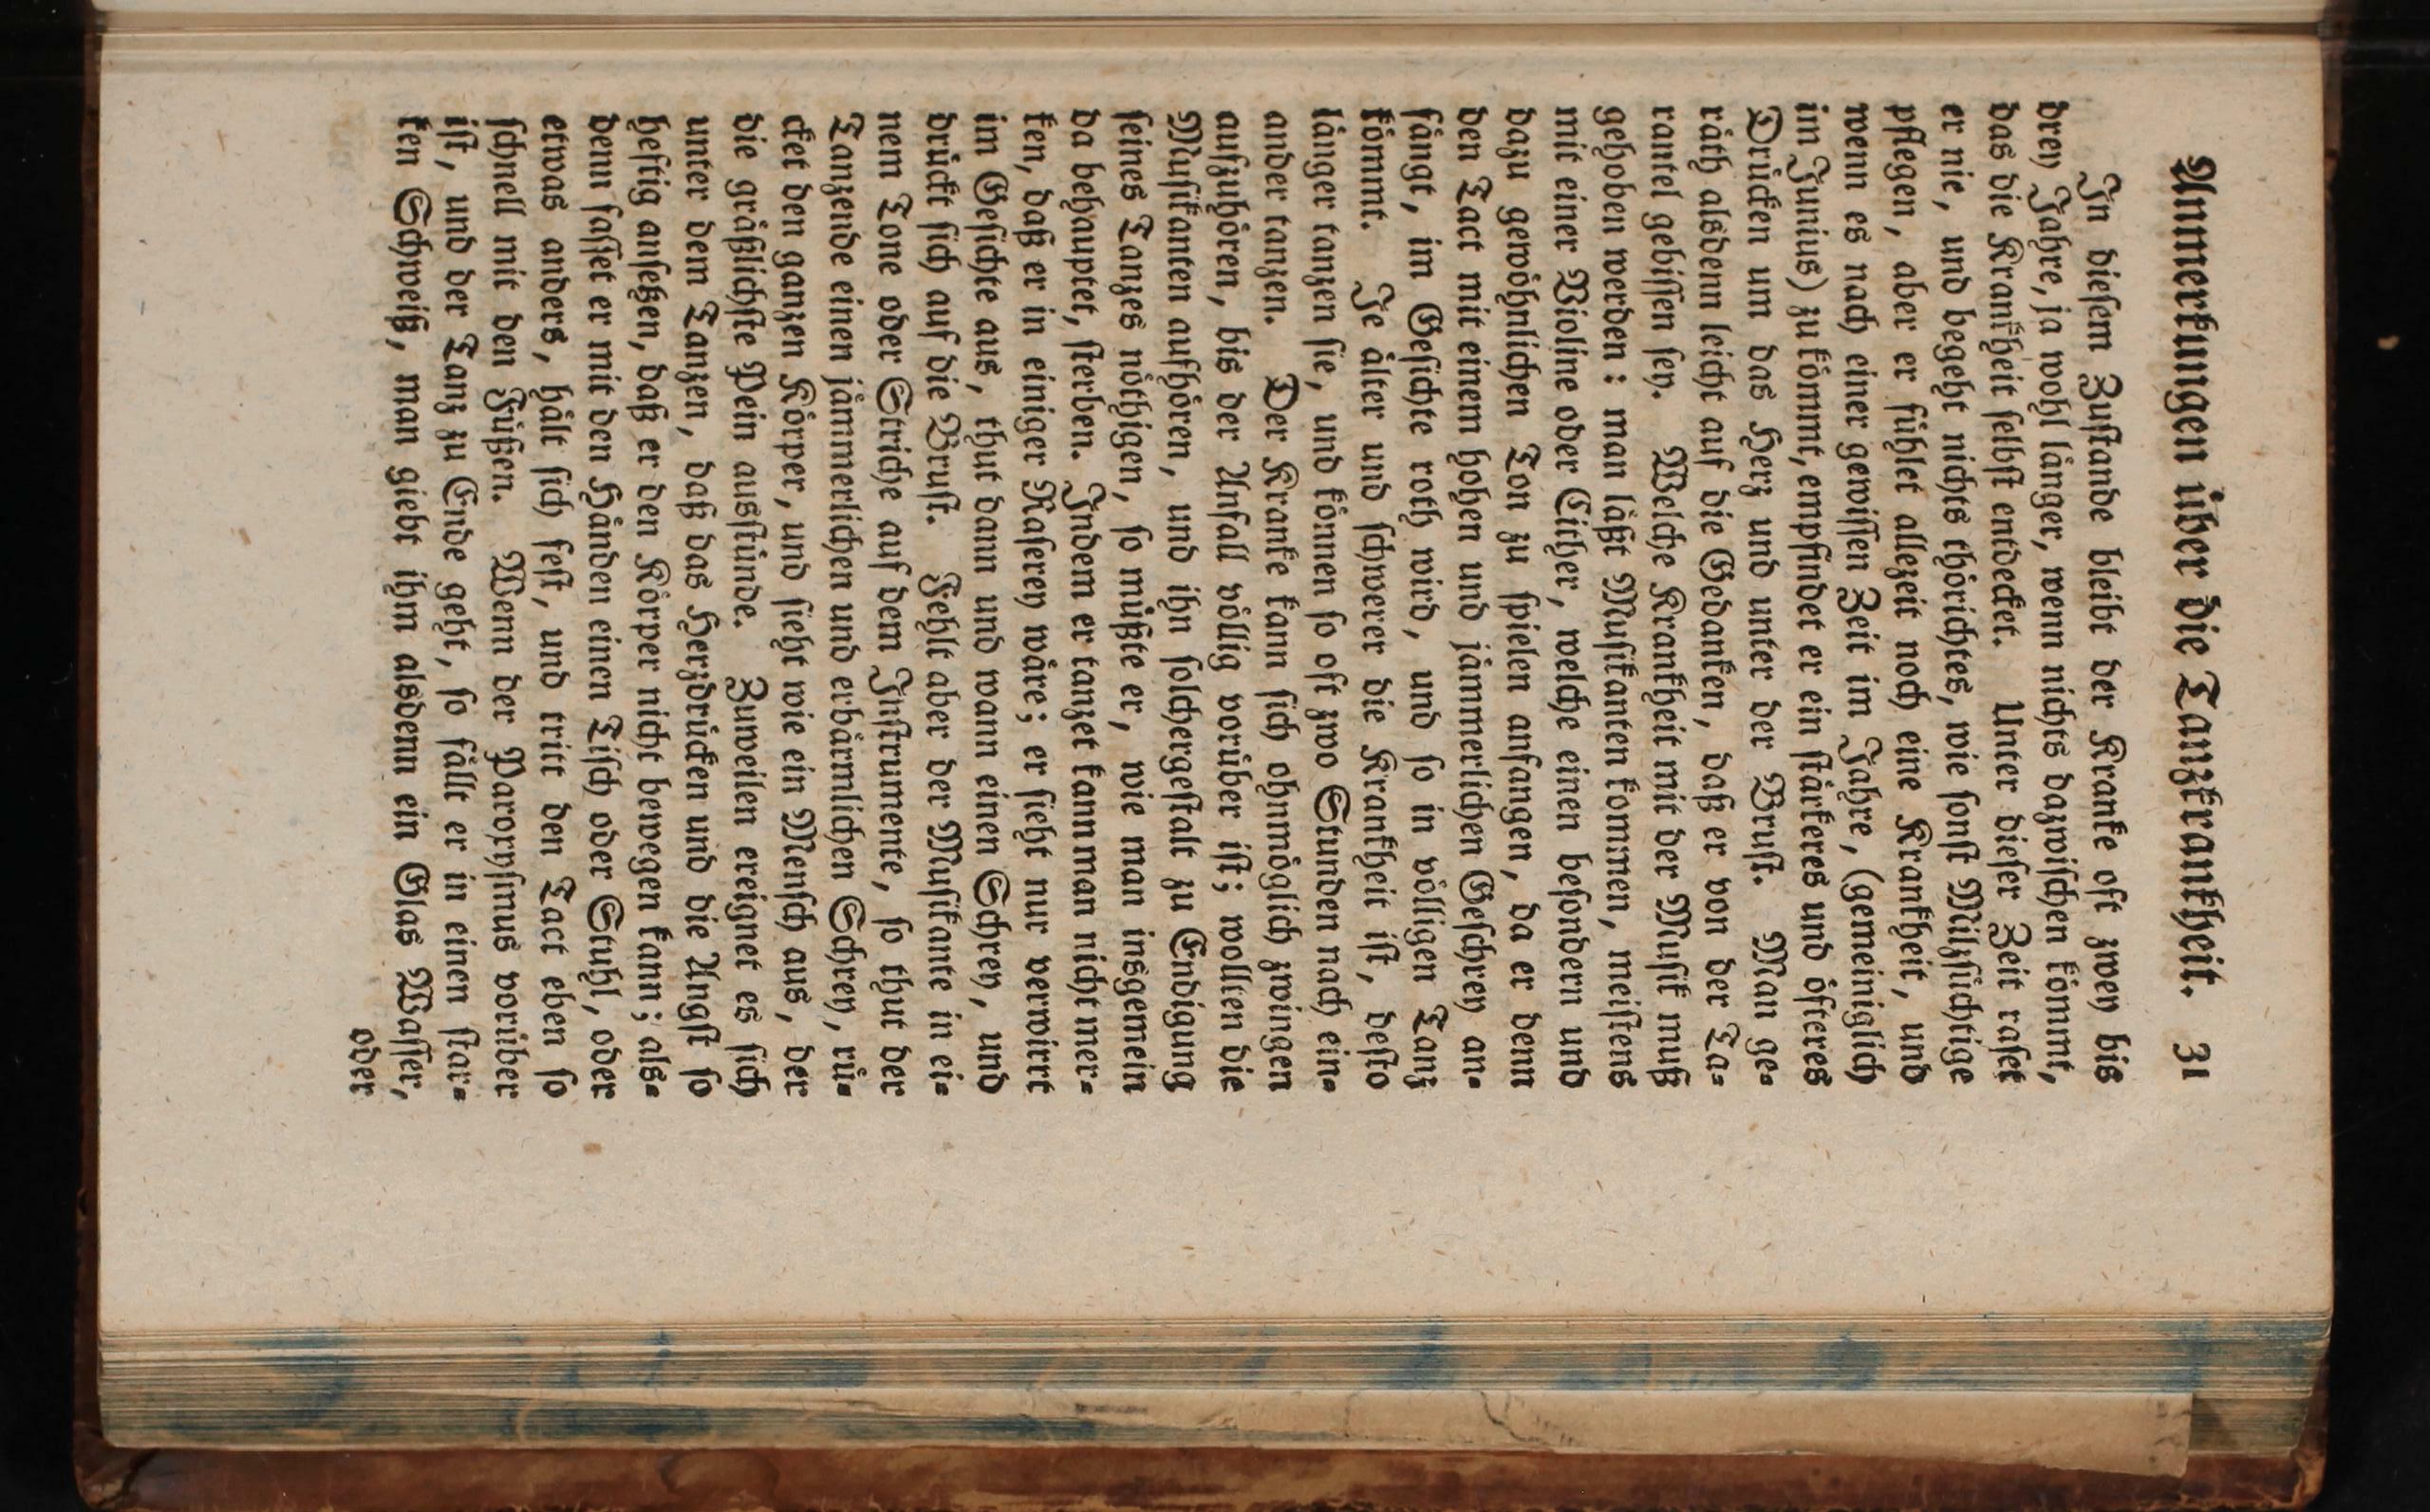 Anmerkungen über die Tanzkrankheit. 31
In dieſem Zuſtande bleibt der Kranke oft zwey bis
drey Jahre, ja wohl länger, wenn nichts dazwiſchen kömmt,
das die Krankheit ſelbſt entdecket. Unter dieſer Zeit raſet
er nie, und begeht nichts thörichtes, wie ſonſt Milzſüchtige
pflegen, aber er fühlet allezeit noch eine Krankheit, und
wenn es nach einer gewiſſen Zeit im Jahre, (gemeiniglich
im Junius) zukömmt, empfindet er ein ſtärkeres und öfteres
Drücken um das Herz und unter der Bruſt. Man ge-
räth alsdenn leicht auf die Gedanken, daß er von der Ta-
rantel gebiſſen ſey. Welche Krankheit mit der Muſik muß
gehoben werden: man läßt Muſikanten kommen, meiſtens
mit einer Violine oder Cither, welche einen beſondern und
dazu gewöhnlichen Ton zu ſpielen anfangen, da er denn
den Tact mit einem hohen und jämmerlichen Geſchrey an-
fängt, im Geſichte roth wird, und ſo in völligen Tanz
kömmt. Je älter und ſchwerer die Krankheit iſt, deſto
länger tanzen ſie, und können ſo oft zwo Stunden nach ein-
ander tanzen. Der Kranke kann ſich ohnmöglich zwingen
aufzuhören, bis der Anfall völlig vorüber iſt; wollten die
Muſikanten aufhören, und ihn ſolchergeſtalt zu Endigung
ſeines Tanzes nöthigen, ſo müßte er, wie man insgemein
da behauptet, ſterben. Indem er tanzet kann man nicht mer-
ken, daß er in einiger Raſerey wäre; er ſieht nur verwirrt
im Geſichte aus, thut dann und wann einen Schrey, und
drückt ſich auf die Bruſt. Fehlt aber der Muſikante in ei-
nem Tone oder Striche auf dem Inſtrumente, ſo thut der
Tanzende einen jämmerlichen und erbärmlichen Schrey, rü-
cket den ganzen Körper, und ſieht wie ein Menſch aus, der
die gräßlichſte Pein ausſtünde. Zuweilen ereignet es ſich
unter dem Tanzen, daß das Herzdrücken und die Angſt ſo
heftig anſetzen, daß er den Körper nicht bewegen kann; als-
denn faſſet er mit den Händen einen Tiſch oder Stuhl, oder
etwas anders, hält ſich feſt, und tritt den Tact eben ſo
ſchnell mit den Füßen. Wenn der Paroxyſmus vorüber
iſt, und der Tanz zu Ende geht, ſo fällt er in einen ſtar-
ken Schweiß, man giebt ihm alsdenn ein Glas Waſſer,
oder